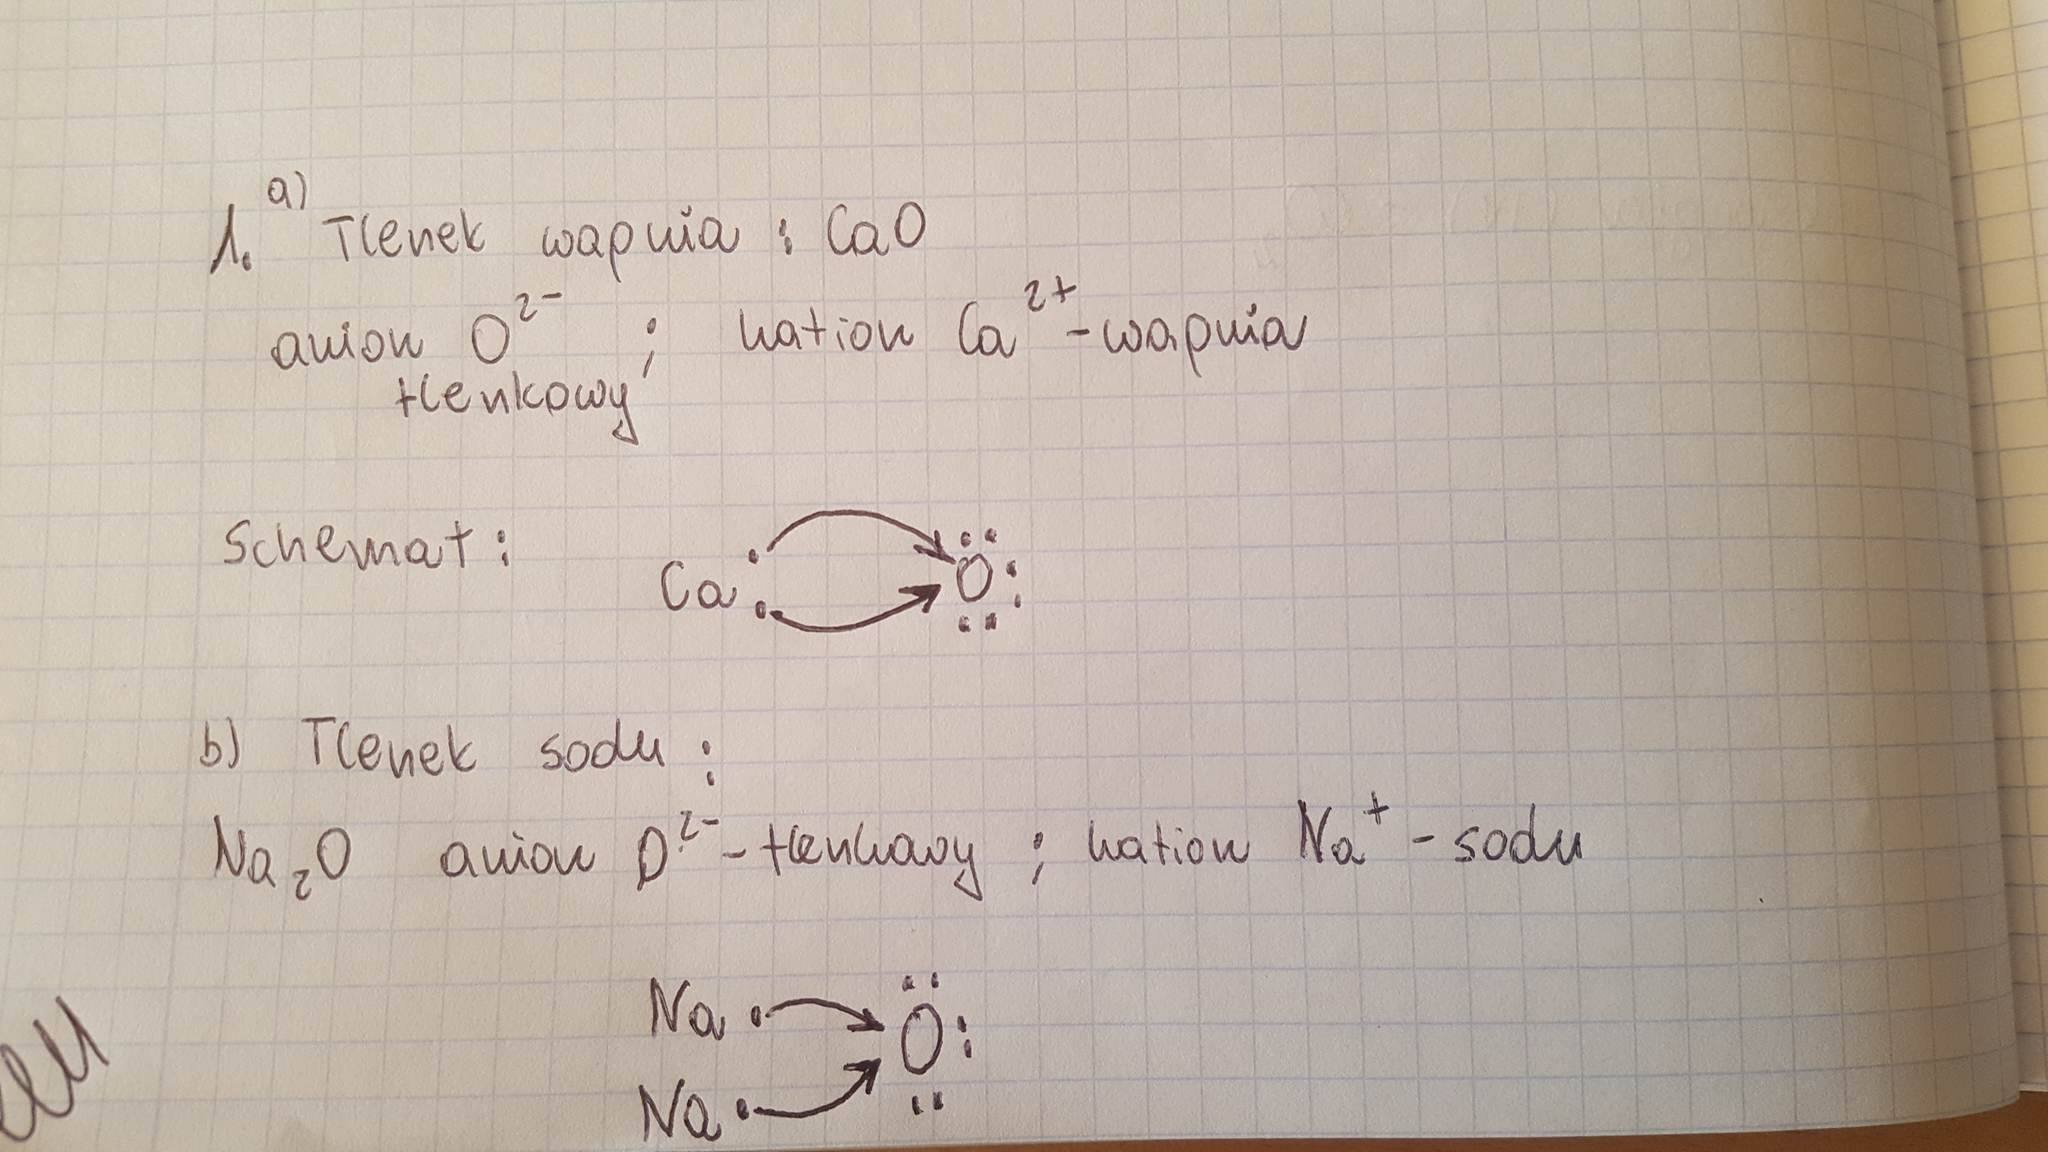 1. a) Tlenek wapnia : CaO
anion O²⁻ ; kation Ca²⁺ - wapnia
tlenkowy
Schemat :
Ca O
b) Tlenek sodu :
Na₂O anion O²⁻ - tlenkowy ; kation Na⁺ - sodu
Na O
Na